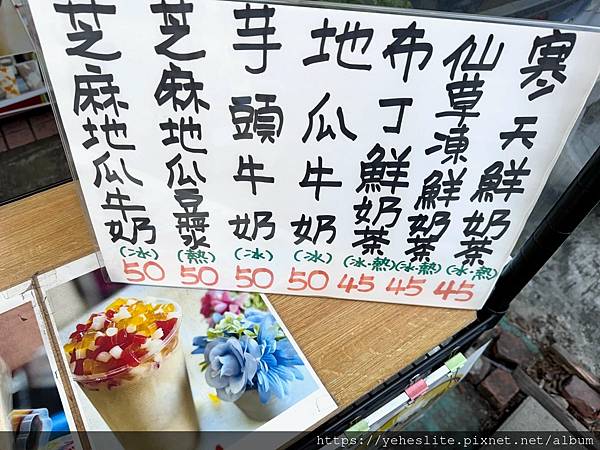 寒天鮮奶茶
(冰、熱)
45
仙草凍鮮奶茶
(冰、熱)
45
布丁鮮奶茶
(冰、熱)
45
地瓜牛奶
(冰)
50
芋頭牛奶
(冰)
50
芝麻地瓜豆漿
(熱)
50
芝麻地瓜牛奶
(冰)
50
https://yeheslite.pixnet.net/album